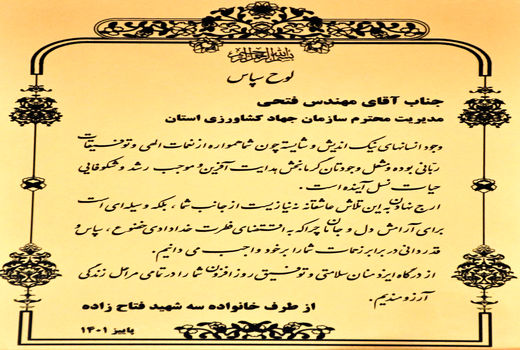 بسم الله الرحمن الرحیم
لوح سپاس
جناب آقای مهندس فتحی
مدیریت محترم سازمان جهاد کشاورزی استان
وجود انسانهای نیک اندیش و شایسته چون شما همواره از نعمات الهی و توفیقات
ربانی بوده و مشعل وجودتان گرمابخش هدایت آفرین و موجب رشد و شکوفایی
حیات نسل آینده است .
ارج نهادن به این تلاش عاشقانه نه نیازیست از جانب شما ، بلکه وسیله ای است
برای آرامش دل و جان ما چرا که به اقتضای فطرت خدادادی خضوع ، سپاس و
قدردانی در برابر زحمات شما را بر خود واجب می دانیم .
از درگاه ایزد منان سلامتی و توفیق روز افزون شما را در تمامی مراحل زندگی
آرزومندیم .
از طرف خانواده سه شهید فتاح زاده
پاییز ۱۴۰۱